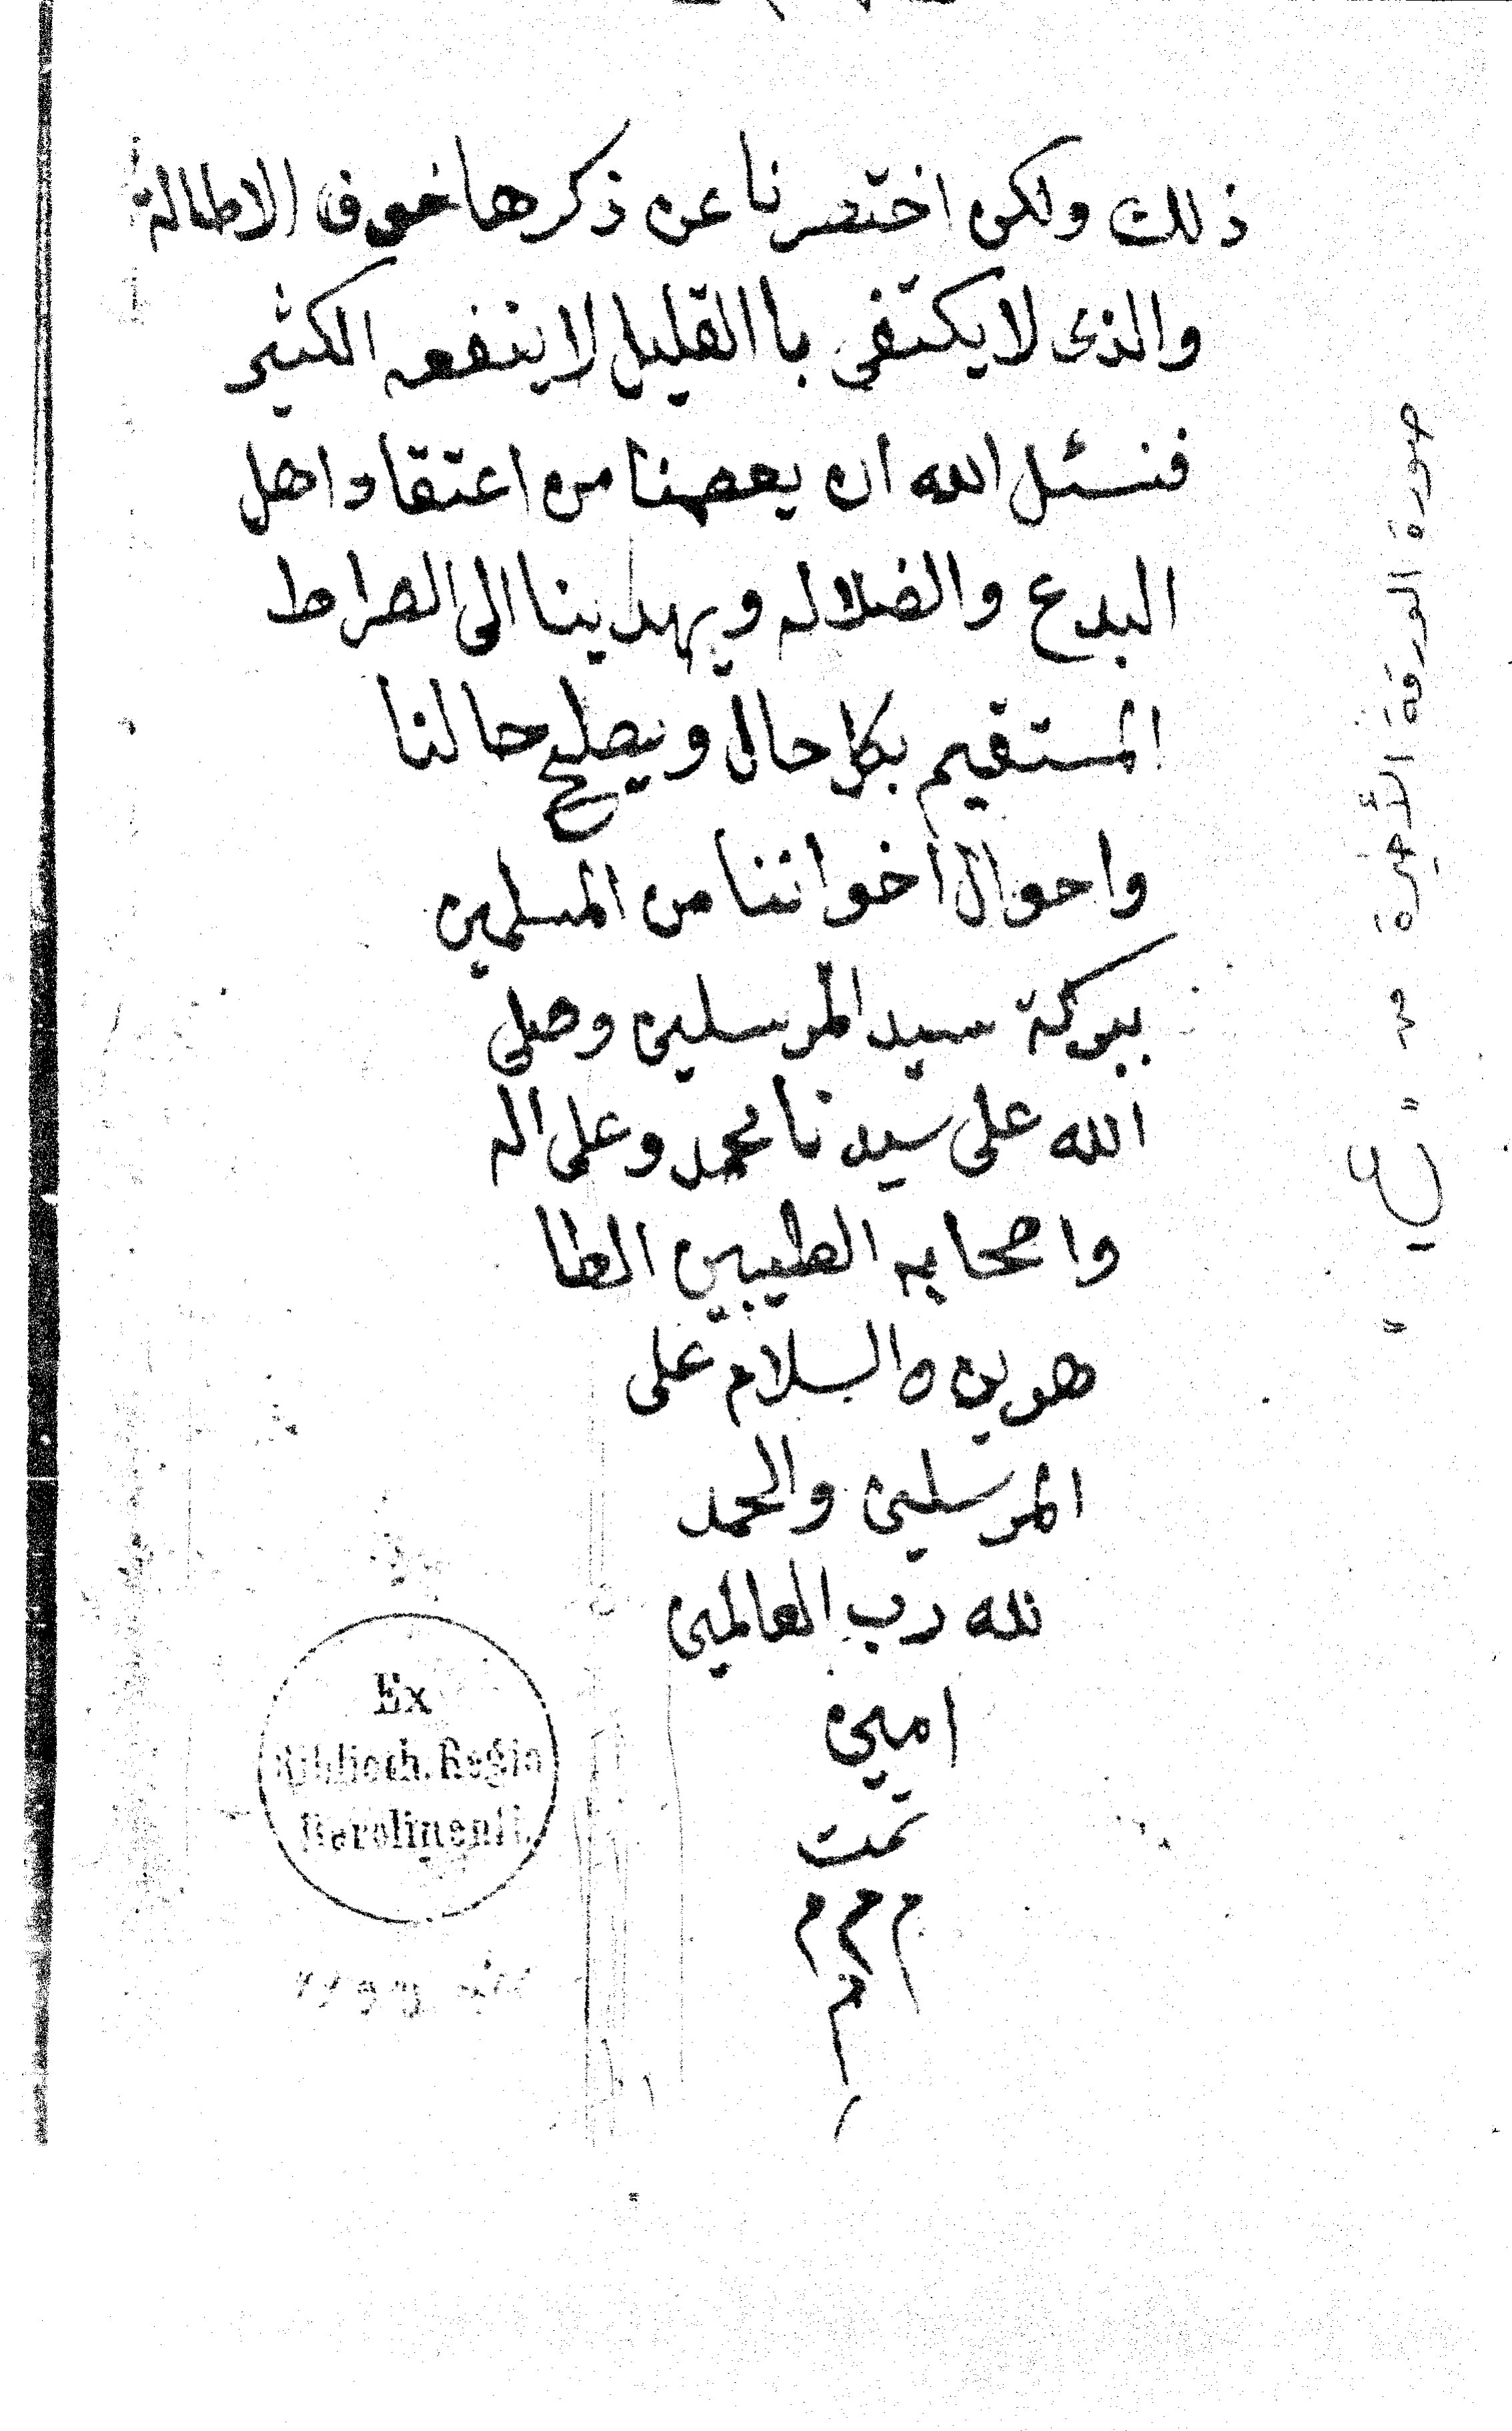 ذلك ولكن اختصرنا عن ذكرها خوف الاطالة
والذى لا يكتفى باالقليل لا ينفعه الكثير
فنسئل الله ان يعصمنا من اعتقاد اهل
البدع والضلاله ويهدينا الى الصراط
المستقيم بكل حال ويصلح حالنا
واحوال اخواننا من المسلمين
ببركة سيد المرسلين وصلى
الله على سيدنا محمد وعلى اله
واصحابه الطيبين الطا
هرين والسلام على
المرسلين والحمد
لله رب العالمين
امين
تمت
م م م
م
صورة الورقة الأخيرة من
"ع"
Ex
Biblioth. Regia